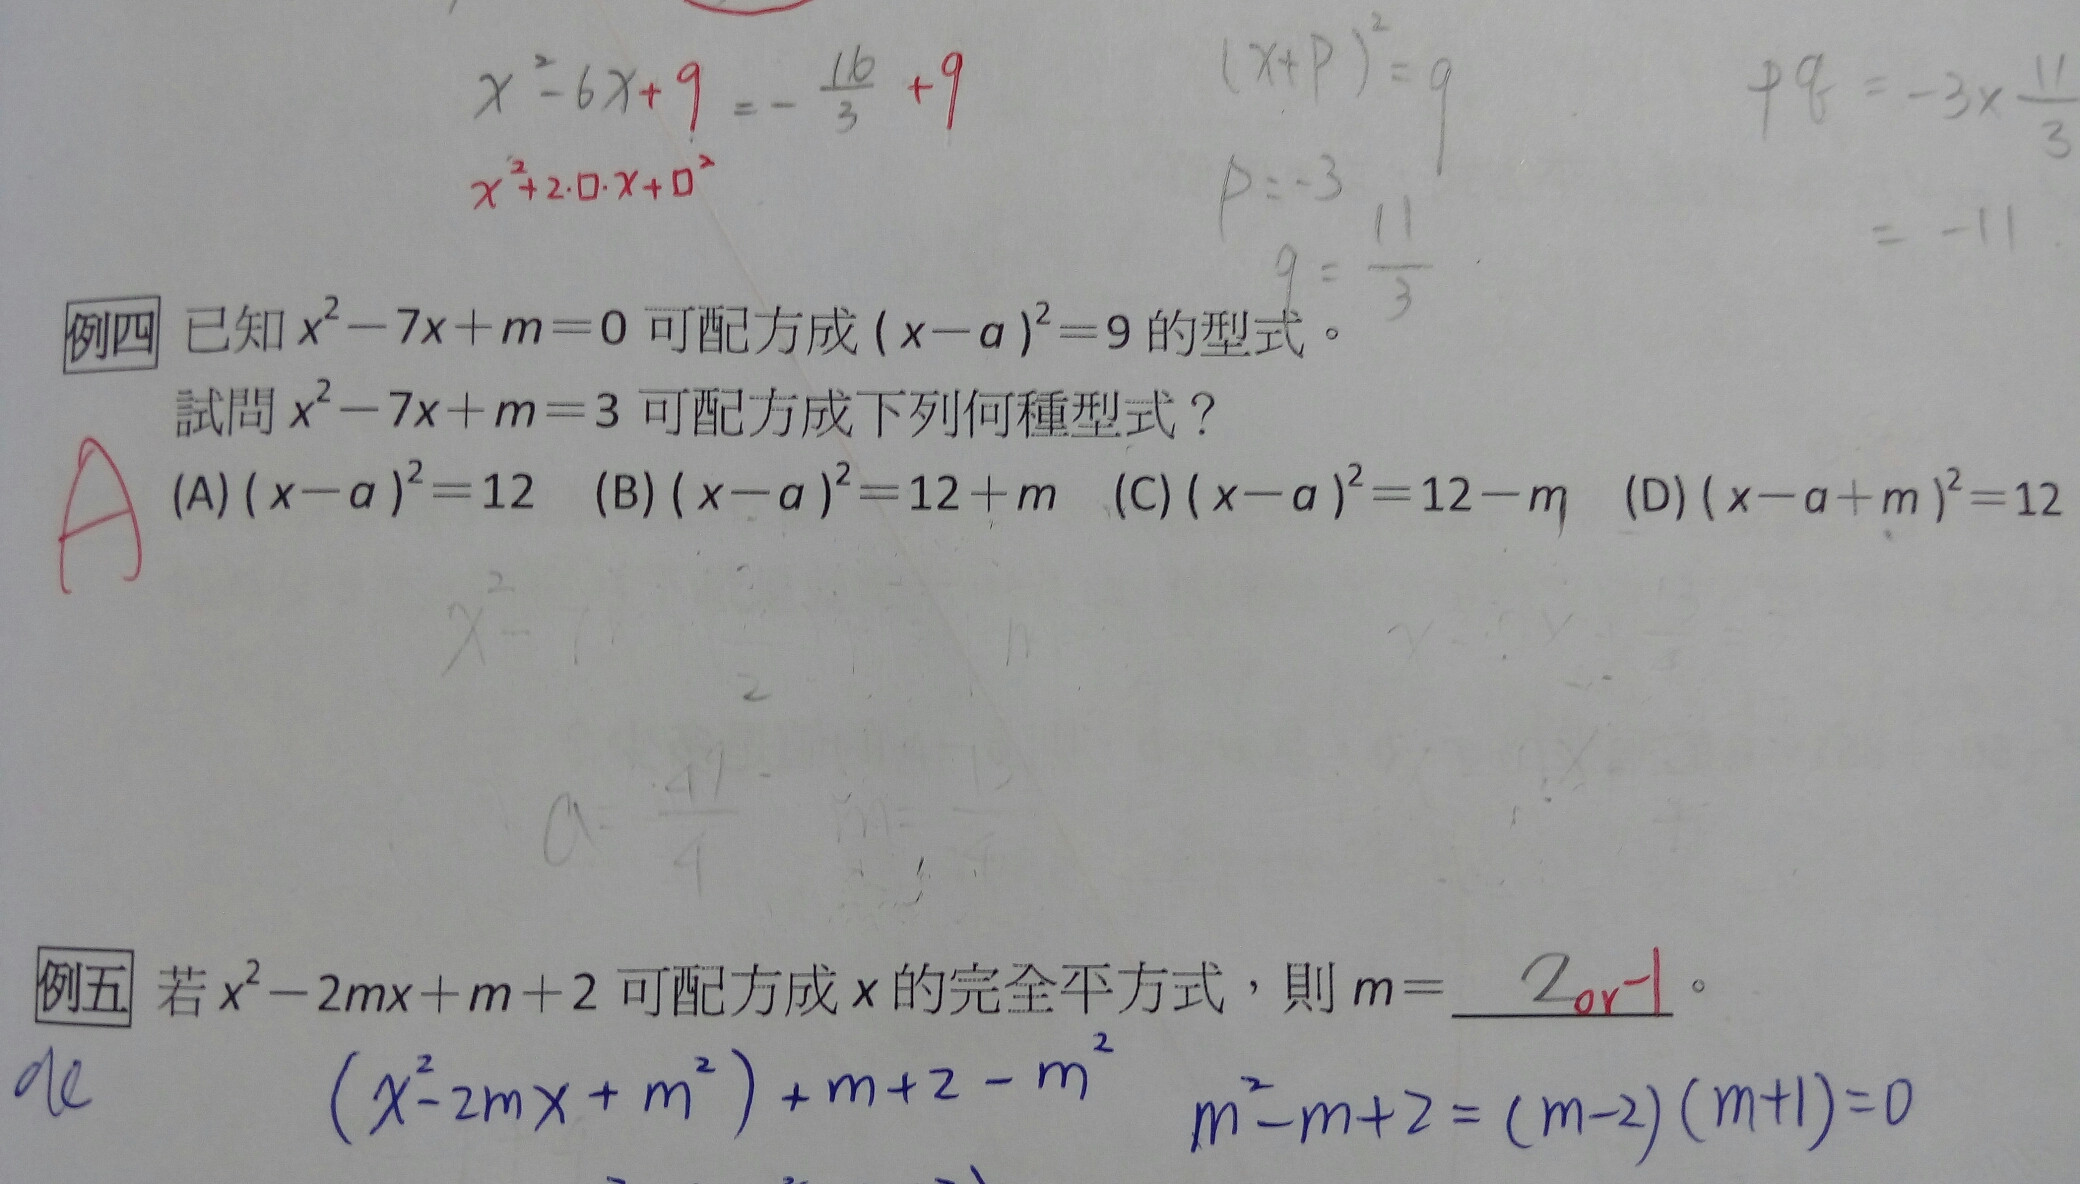 x²-6x+9=-16/3+9
x²+2·□·x+□²
(x+p)²=q
p=-3
q=11/3
pq=-3×11/3
=-11
例四 已知 x²－7x＋m＝0 可配方成 ( x－a )²＝9 的型式。
試問 x²－7x＋m＝3 可配方成下列何種型式？
A
(A) ( x－a )²＝12 (B) ( x－a )²＝12＋m (C) ( x－a )²＝12－m (D) ( x－a＋m )²＝12
例五 若 x²－2mx＋m＋2 可配方成 x 的完全平方式，則 m＝ 2or-1 。
(x²-2mx+m²)+m+2-m²
m²-m+2=(m-2)(m+1)=0